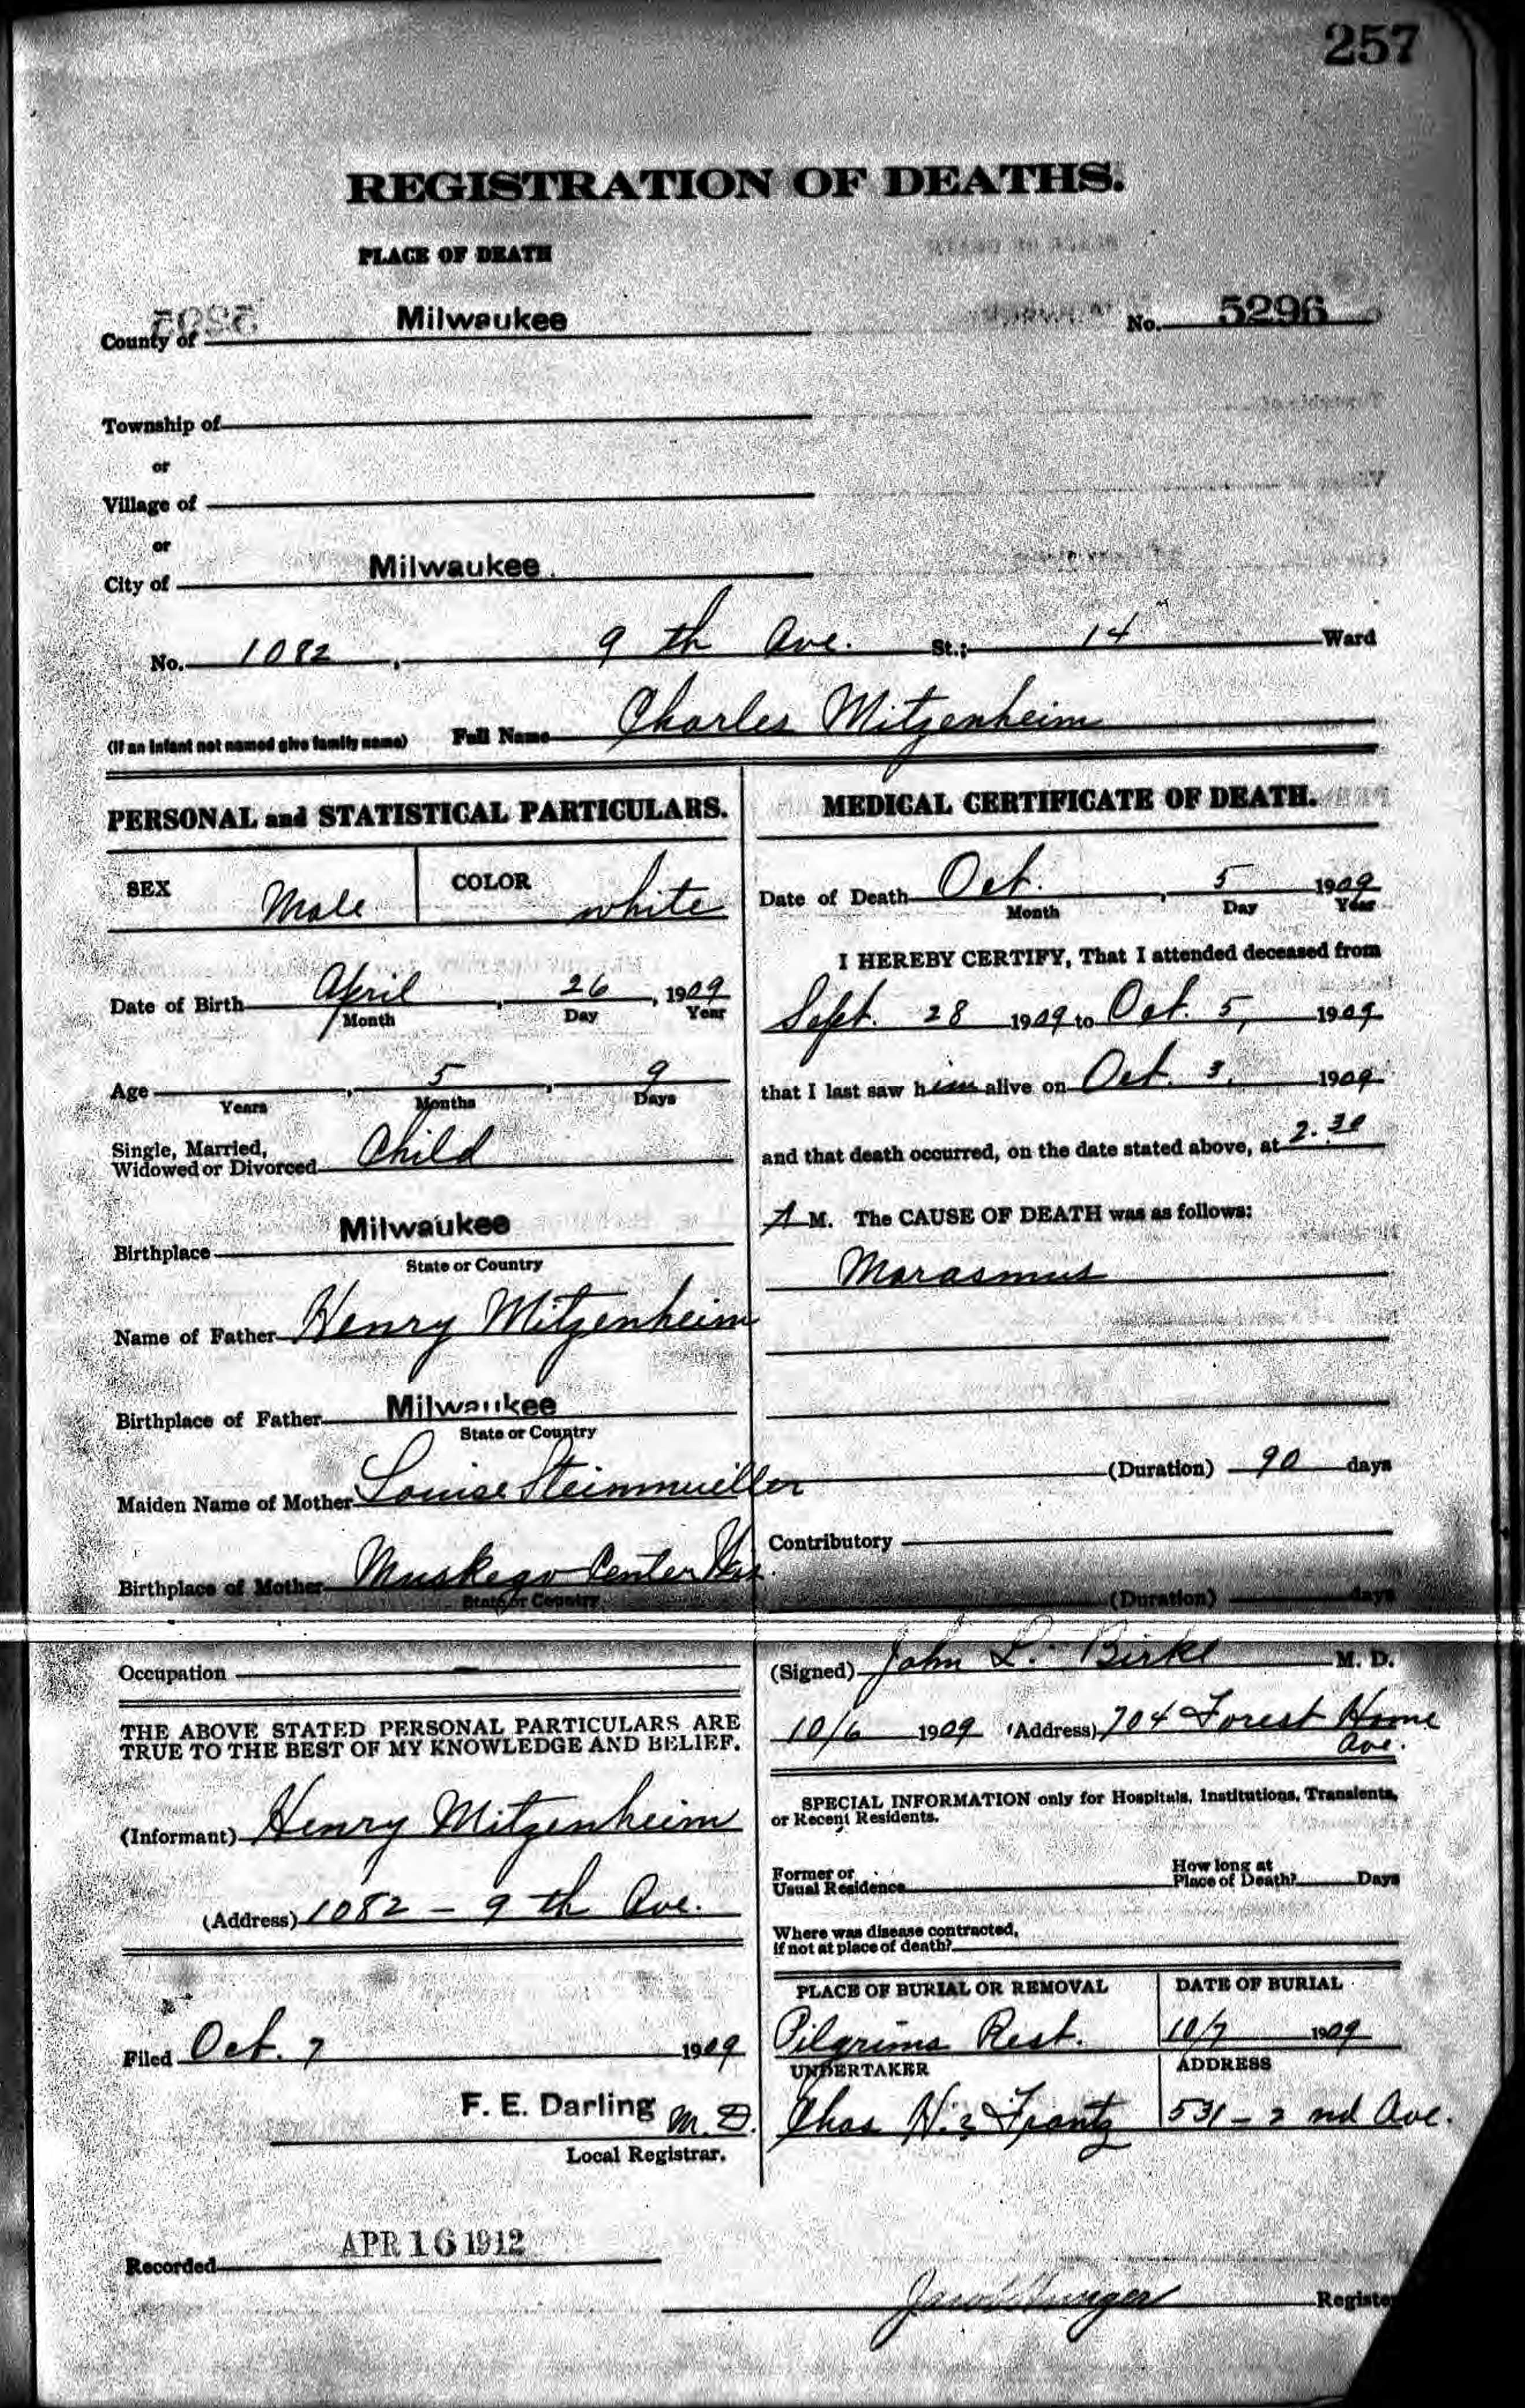 257
REGISTRATION OF DEATHS.
PLACE OF DEATH
County of Milwaukee No. 5296
Township of
or
Village of
or
City of Milwaukee.
No. 1082, 9 th Ave. St.; 14 Ward
(If an infant not named give family name) Full Name Charles Mitzenheim
PERSONAL and STATISTICAL PARTICULARS.
SEX Male COLOR white
Date of Birth April, 26, 1909
Month Day Year
Age , 5, 9
Years Months Days
Single, Married,
Widowed or Divorced Child
Birthplace Milwaukee
State or Country
Name of Father Henry Mitzenheim
Birthplace of Father Milwaukee
State or Country
Maiden Name of Mother Louise Steinmueller
Birthplace of Mother Muskego Center Wis.
State or Country
Occupation —
THE ABOVE STATED PERSONAL PARTICULARS ARE
TRUE TO THE BEST OF MY KNOWLEDGE AND BELIEF.
(Informant) Henry Mitzenheim
(Address) 1082 - 9 th Ave.
Filed Oct. 7 1909
F. E. Darling M.D.
Local Registrar.
MEDICAL CERTIFICATE OF DEATH.
Date of Death Oct., 5 1909
Month Day Year
I HEREBY CERTIFY, That I attended deceased from
Sept. 28 1909 to Oct. 5, 1909
that I last saw him alive on Oct. 3, 1909
and that death occurred, on the date stated above, at 2.30
A M. The CAUSE OF DEATH was as follows:
Marasmus
(Duration) 90 days
Contributory
(Duration) days
(Signed) John L. Birke M. D.
10/6 1909 (Address) 704 Forest Home
Ave.
SPECIAL INFORMATION only for Hospitals, Institutions, Transients,
or Recent Residents.
Former or
Usual Residence
How long at
Place of Death? Days
Where was disease contracted,
if not at place of death?
PLACE OF BURIAL OR REMOVAL DATE OF BURIAL
Pilgrims Rest. 10/7 1909
UNDERTAKER ADDRESS
Chas H. Frantz 531 - 2 nd Ave.
Recorded APR 16 1912
Register